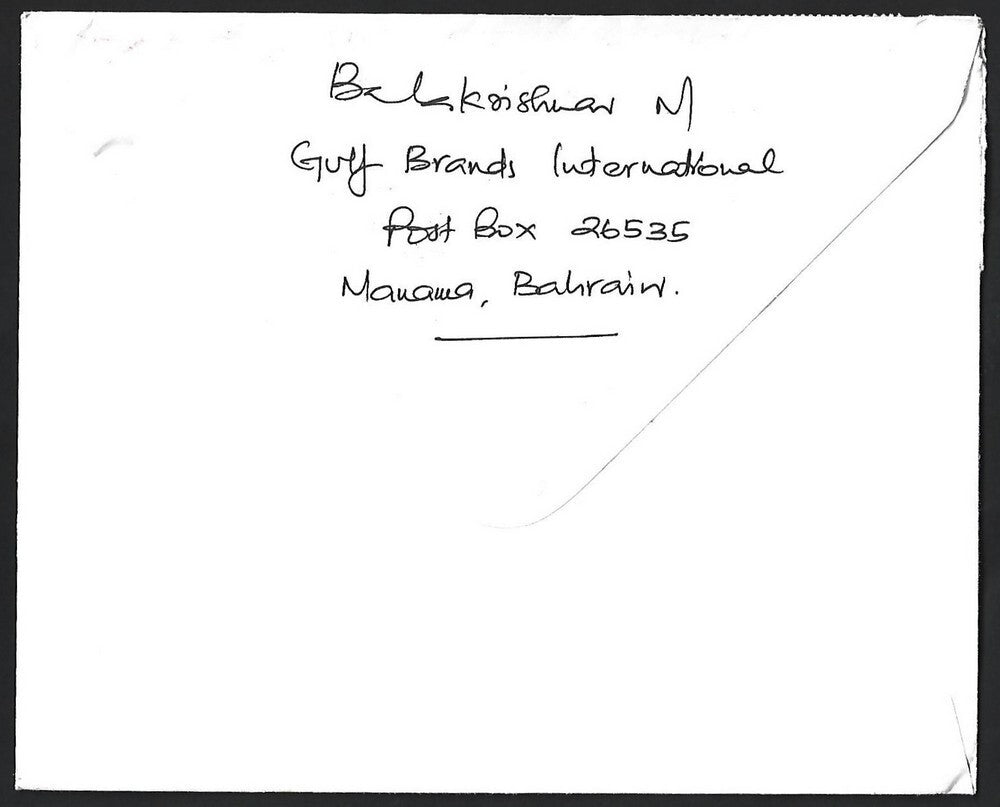 Balakrishnan M
Gulf Brands International
Post Box 26535
Manama, Bahrain.